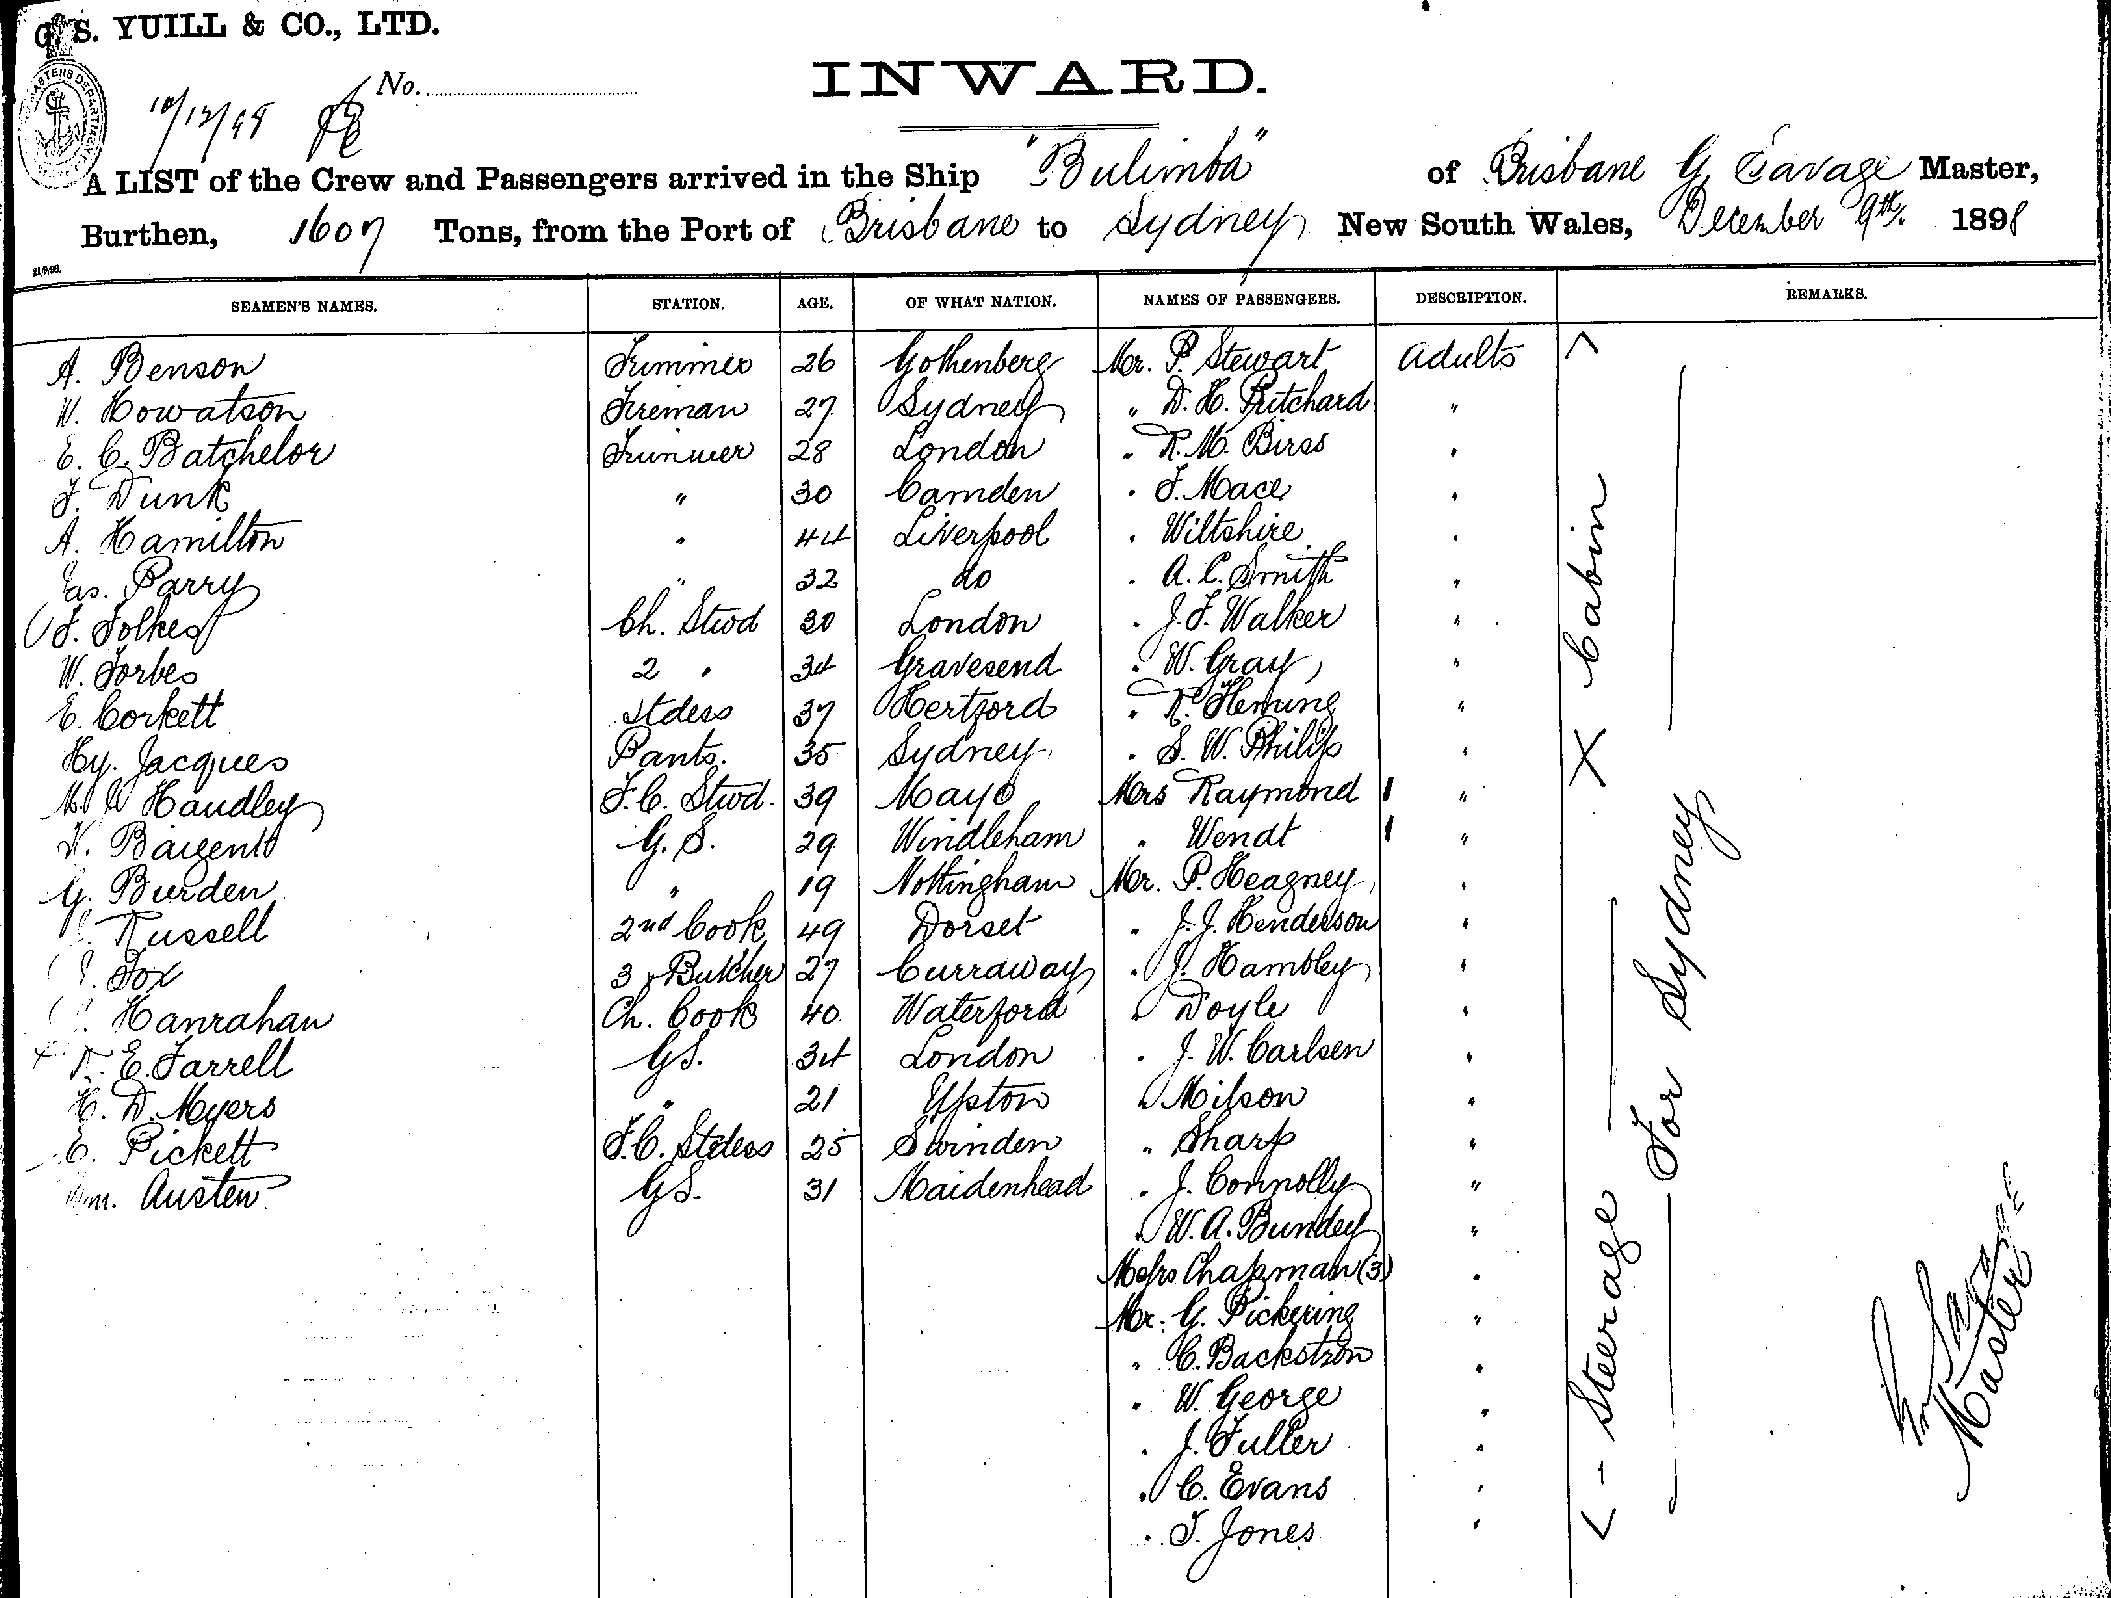 G. S. YUILL & CO., LTD.
No.
INWARD.
10/12/98
A LIST of the Crew and Passengers arrived in the Ship "Bulimba" of Brisbane G. Savage Master,
Burthen, 1607 Tons, from the Port of Brisbane to Sydney New South Wales, December 9th. 1898
SEAMEN'S NAMES. STATION. AGE. OF WHAT NATION. NAMES OF PASSENGERS. DESCRIPTION. REMARKS.
A. Benson Trimmer 26 Gothenberg Mr. P. Stewart Adults
W. Howatson Fireman 27 Sydney " D. H. Pritchard "
E. C. Batchelor Trimmer 28 London " R. M. Birss "
F. Dunk " 30 Camden " F. Mace "
A. Hamilton " 44 Liverpool " Wiltshire "
Jas. Parry " 32 do " A. C. Smith "
F. Folkes Ch. Stwd 30 London " J. F. Walker "
W. Forbes 2 " 34 Gravesend " W. Gray "
E. Corkett Stdess 37 Hertford " R. Fleming "
Hy. Jacques Pants. 35 Sydney " S. W. Philp "
Handley F.C. Stwd. 39 Mayo Mrs Raymond 1 "
W. Baigent G. S. 29 Windleham " Wendt 1 "
G. Burden " 19 Nottingham Mr. P. Heagney "
Russell 2nd Cook 49 Dorset " J. J. Henderson "
Fox 3 & Butcher 27 Curraway " J. Hambley "
Hanrahan Ch. Cook 40 Waterford " Doyle "
E. Farrell GS. 34 London " J. W. Carlsen "
H. D. Myers " 21 " Milson "
E. Pickett F.C. Stdess 25 Swinden " Sharp "
Wm. Austen GS. 31 Maidenhead " J. Connolly "
" W. A. Bundey "
Messrs Chapman (3) "
Mr. G. Pickering "
" C. Backstron "
" W. George "
" J. Fuller "
" C. Evans "
" T. Jones "
Cabin
Steerage
For Sydney
Master